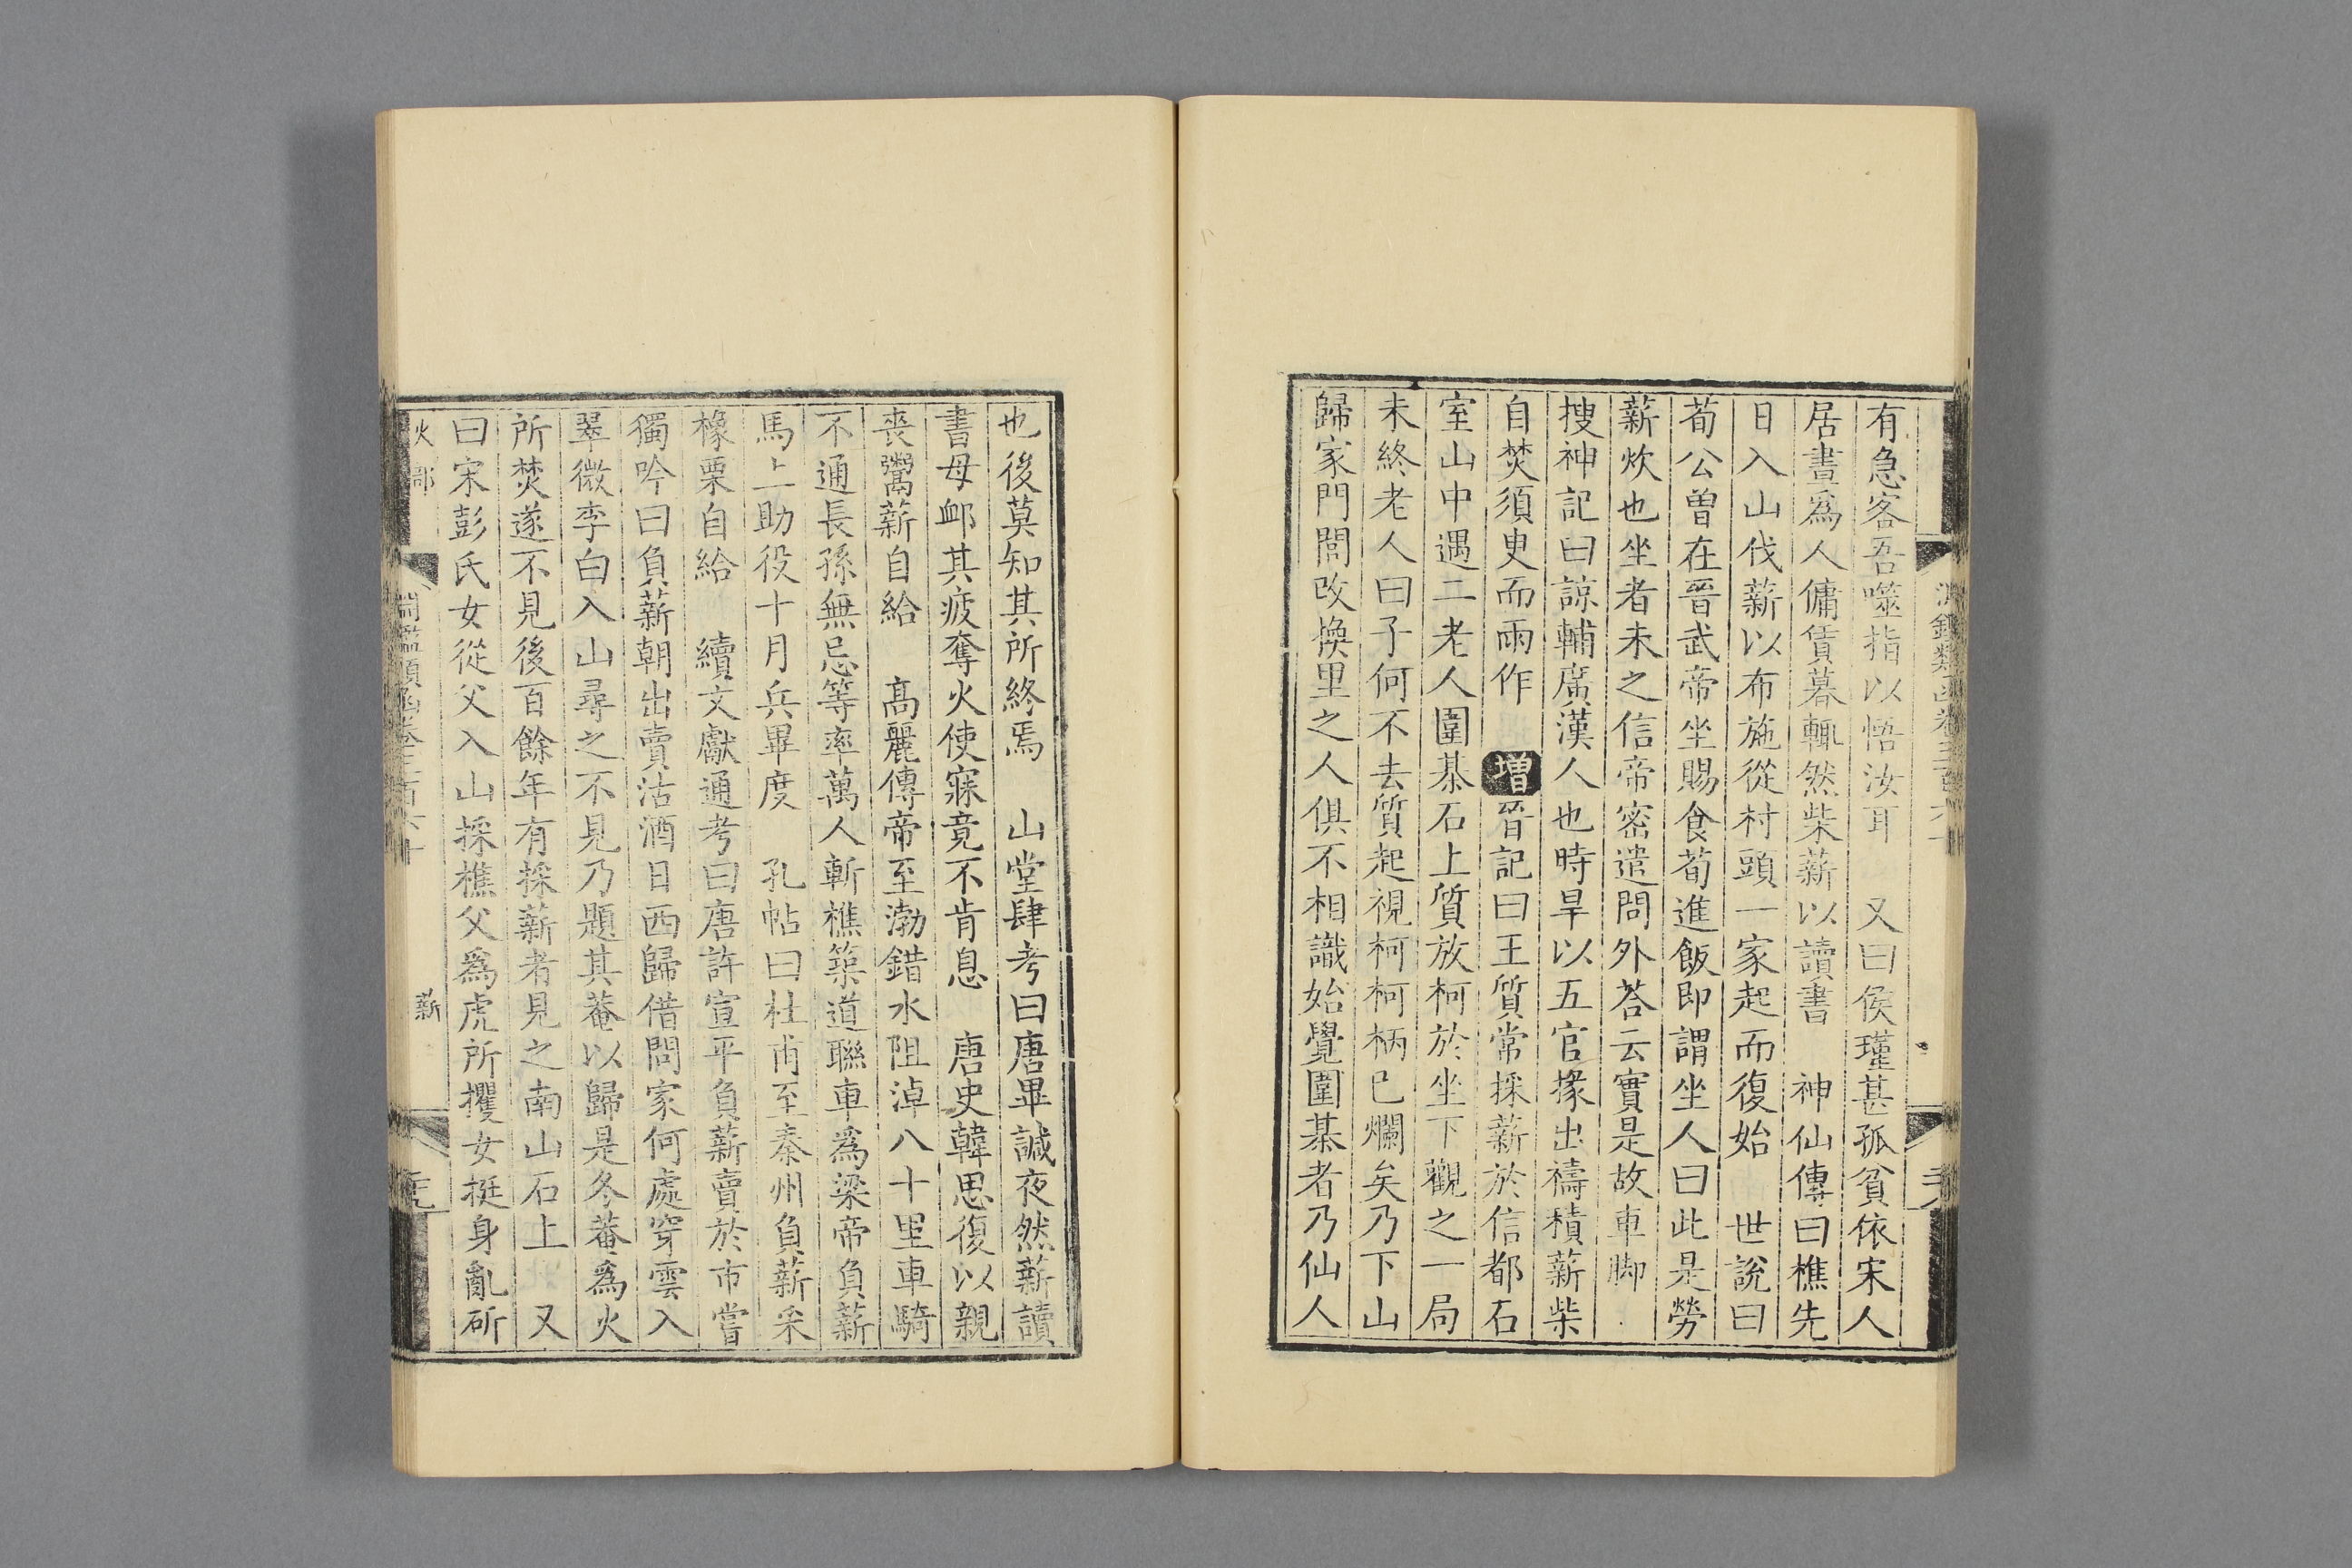 有急客吾噬指以悟汝耳 又曰侯瑾甚孤貧依宋人
居晝爲人傭賃暮輒然柴薪以讀書 神仙傳曰樵先
日入山伐薪以布施從村頭一家起而復始 世說曰
荀公曽在晉武帝坐賜食荀進飯即謂坐人曰此是勞
薪炊也坐者未之信帝密遣問外荅云實是故車脚
搜神記曰諒輔廣漢人也時旱以五官掾出禱積薪柴
自焚須臾而雨作 增晉記曰王質常採薪於信都石
室山中遇二老人圍棊石上質放柯於坐下觀之一局
未終老人曰子何不去質起視柯柯柄已爛矣乃下山
歸家門閭改換里之人俱不相識始覺圍棊者乃仙人
也後莫知其所終焉 山堂肆考曰唐畢諴夜然薪讀
書母䘏其疲奪火使寐竟不肯息 唐史韓思復以親
喪鬻薪自給 高麗傳帝至渤錯水阻淖八十里車騎
不通長孫無忌等率萬人斬樵築道聯車爲梁帝負薪
馬上助役十月兵畢度 孔帖曰杜甫至秦州負薪采
橡栗自給 續文獻通考曰唐許宣平負薪賣於市嘗
獨吟曰負薪朝出賣沽酒日西歸借問家何處穿雲入
翠微李白入山尋之不見乃題其菴以歸是冬菴爲火
所焚遂不見後百餘年有採薪者見之南山石上 又
曰宋彭氏女從父入山採樵父爲虎所攫女挺身亂斫
火部 淵鑑類函卷三百六十 薪